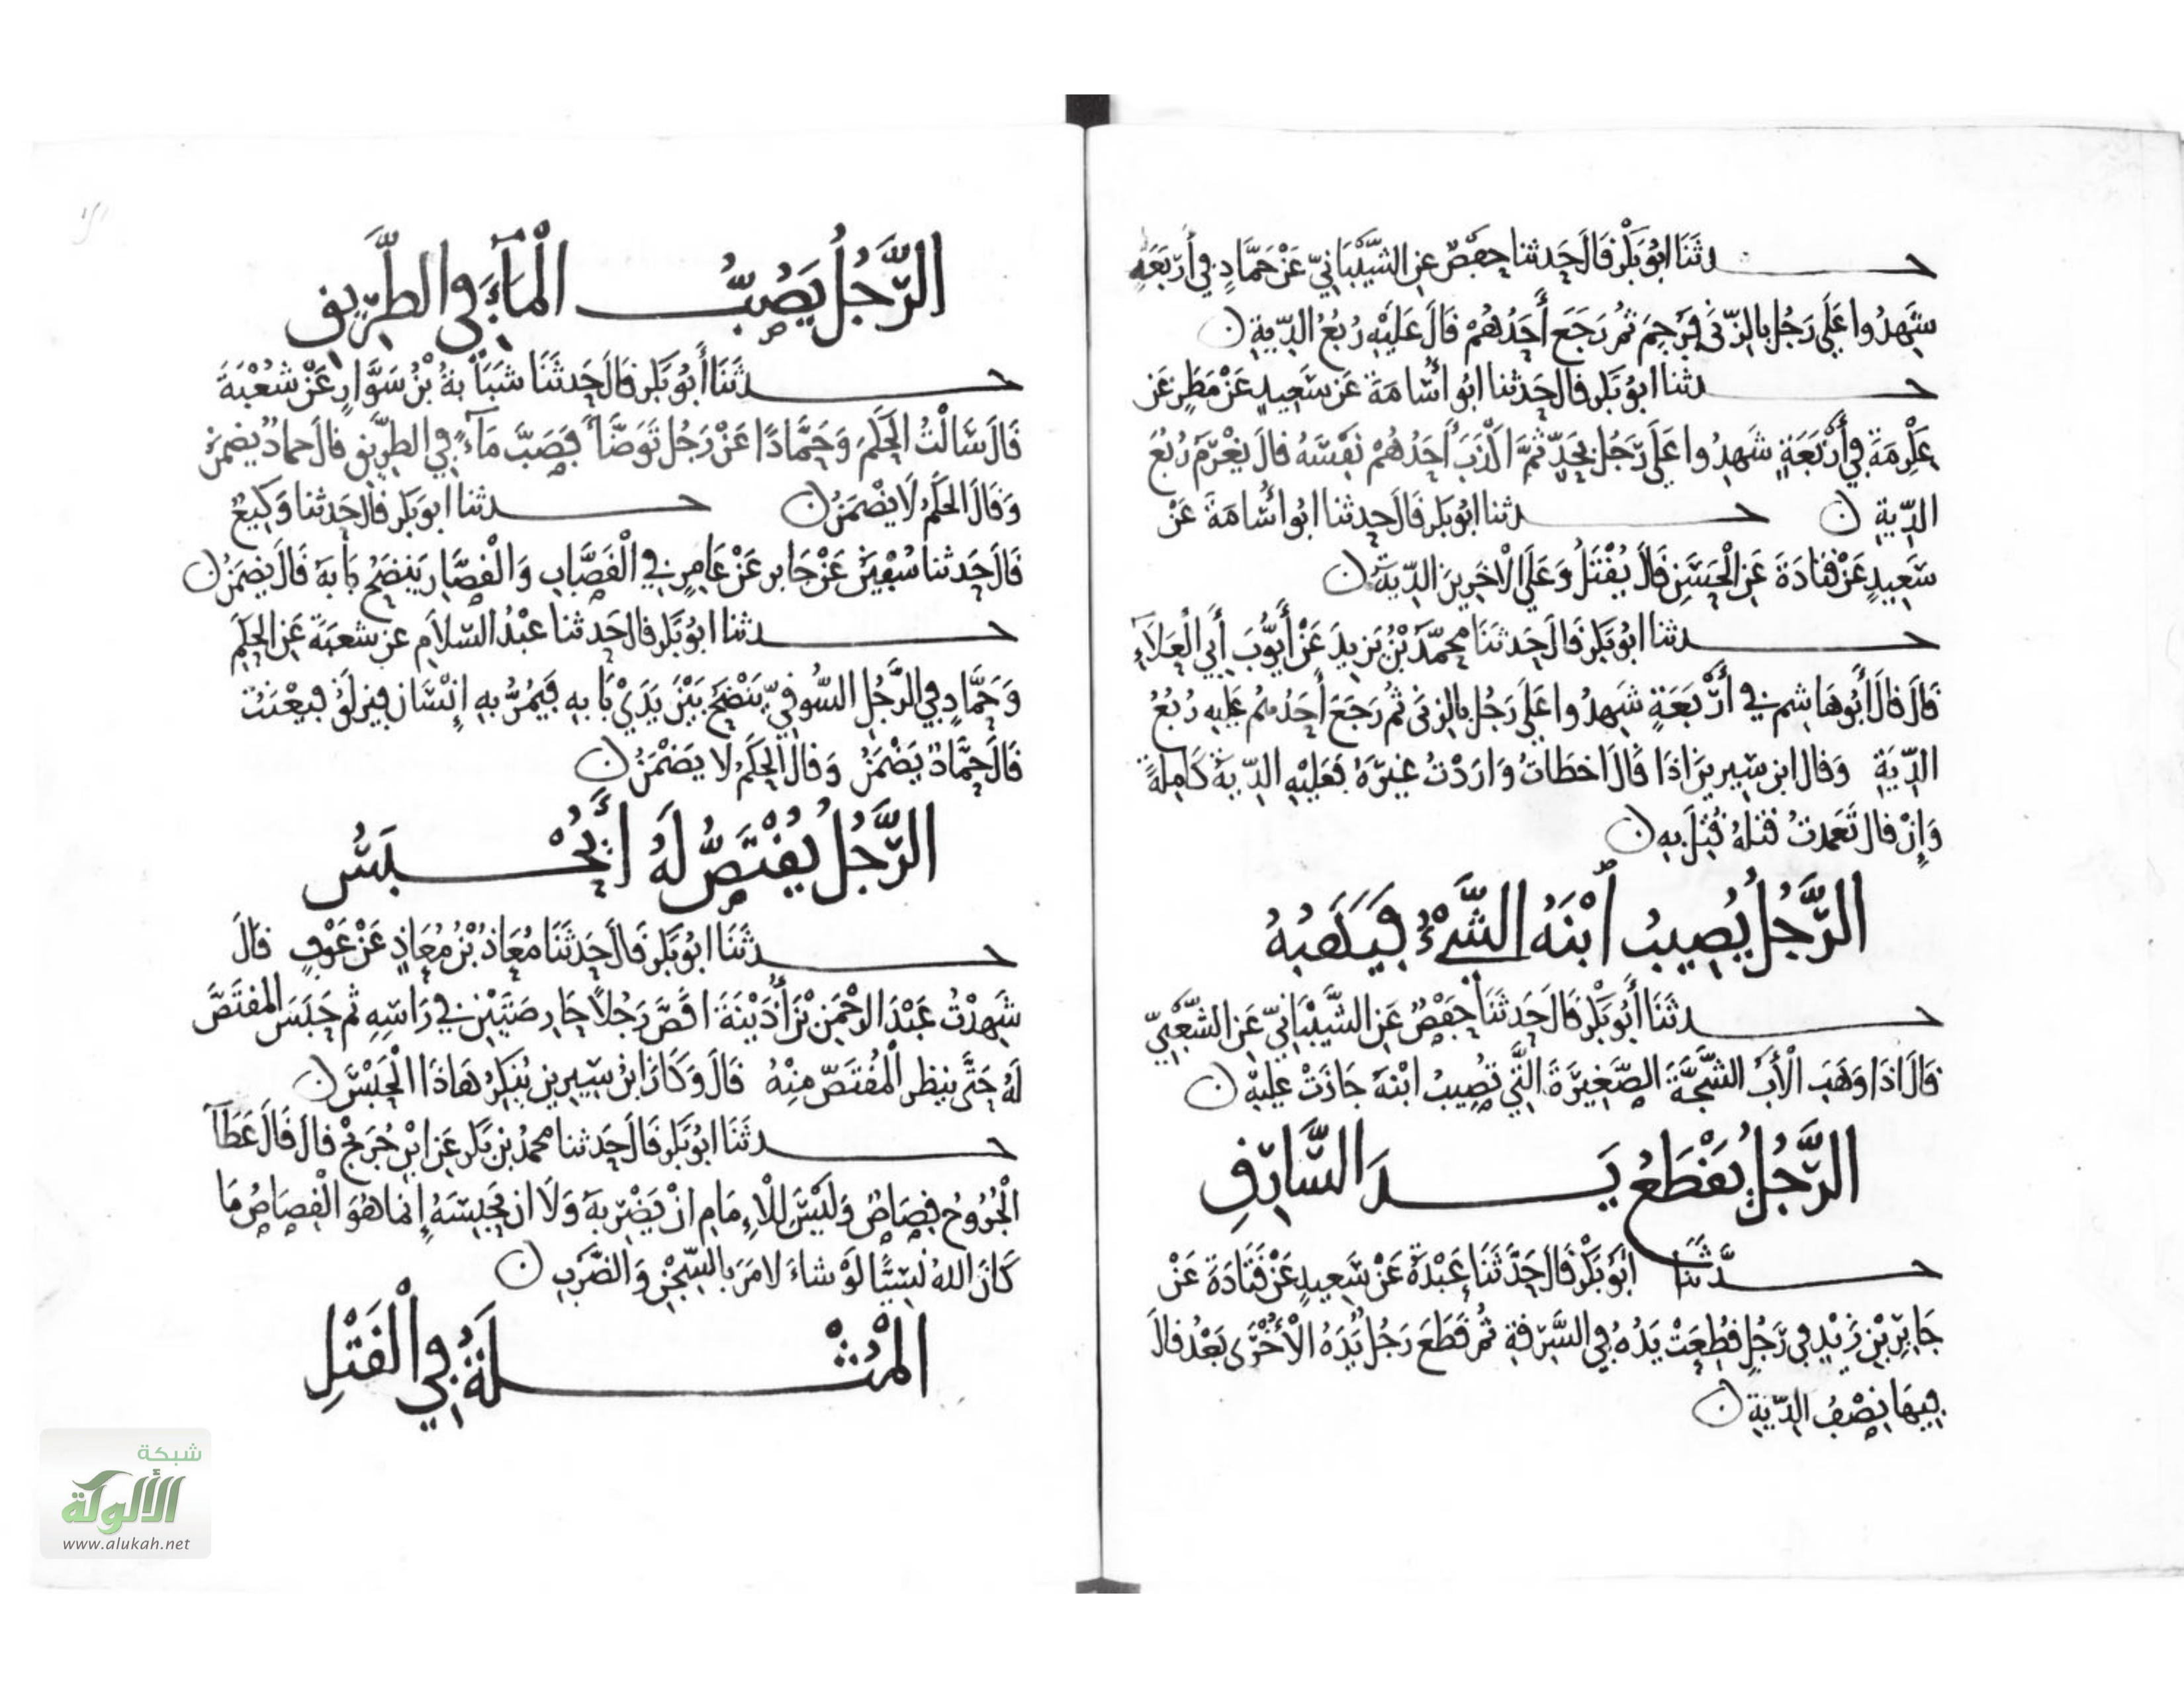 حدثنا أبو بكر قال حدثنا حفص عن الشيباني عن حماد في أربعة
شهدوا على رجل بالزنى فرجم ثم رجع أحدهم قال عليه ربع الدية
حدثنا ابو بكر قال حدثنا ابو أسامة عن سعيد عن مطر عن
عكرمة في أربعة شهدوا على رجل بحد ثم أكذب أحدهم نفسه قال يغرم ربع
الدية حدثنا ابو بكر قال حدثنا ابو أسامة عن
سعيد عن قتادة عن الحسن قال يقتل وعلى الاخرين الدية
حدثنا ابو بكر قال حدثنا محمد بن يزيد عن أيوب أبي العلاء
قال قال أبو هاشم في أربعة شهدوا على رجل بالزنى ثم رجع أحدهم عليه ربع
الدية وقال ابن سيرين اذا قال اخطات واردت غيره فعليه الدية كاملة
وإن قال تعمدت قتله قتل به
الرجل يصيب ابنه الشيء فيهبه
حدثنا أبو بكر قال حدثنا حفص عن الشيباني عن الشعبي
قال اذا وهب الأب الشجة الصغيرة التي تصيب ابنه جازت عليه
الرجل يقطع يد السارق
حدثنا ابو بكر قال حدثنا عبدة عن سعيد عن قتادة عن
جابر بن زيد في رجل قطعت يده في السرقة ثم قطع رجل يده الأخرى بعد قال
فيها نصف الدية
الرجل يصب الماء في الطريق
حدثنا أبو بكر قال حدثنا شبابة بن سوار عن شعبة
قال سالت الحكم وحمادا عن رجل توضأ فصب ماء في الطريق قال حماد يضمن
وقال الحكم لا يضمن حدثنا ابو بكر قال حدثنا وكيع
قال حدثنا سفين عن جابر عن عامر في القصاب والقصار ينضح بابه قال يضمن
حدثنا ابو بكر قال حدثنا عبد السلام عن شعبة عن الحكم
وحماد في الرجل السوقي ينضح بين يدي بابه فيمر به إنسان فيزلق فيعنت
قال حماد يضمن وقال الحكم لا يضمن
الرجل يقتص له أيحبس
حدثنا ابو بكر قال حدثنا معاذ بن معاذ عن عوف قال
شهدت عبد الرحمن بن أذينة اقص رجلا حارصتين في راسه ثم حبس المقتص
له حتى ينظر المقتص منه قال وكان ابن سيرين ينكر هاذا الحبس
حدثنا ابو بكر قال حدثنا محمد بن بكر عن ابن جريج قال قال عطآ
الجروح قصاص وليس للإمام ان يضربه ولا ان يحبسه إنما هو القصاص ما
كان الله نسيا لو شاء لامر بالسجن والضرب
المثلة في القتل
شبكة
الألوكة
www.alukah.net